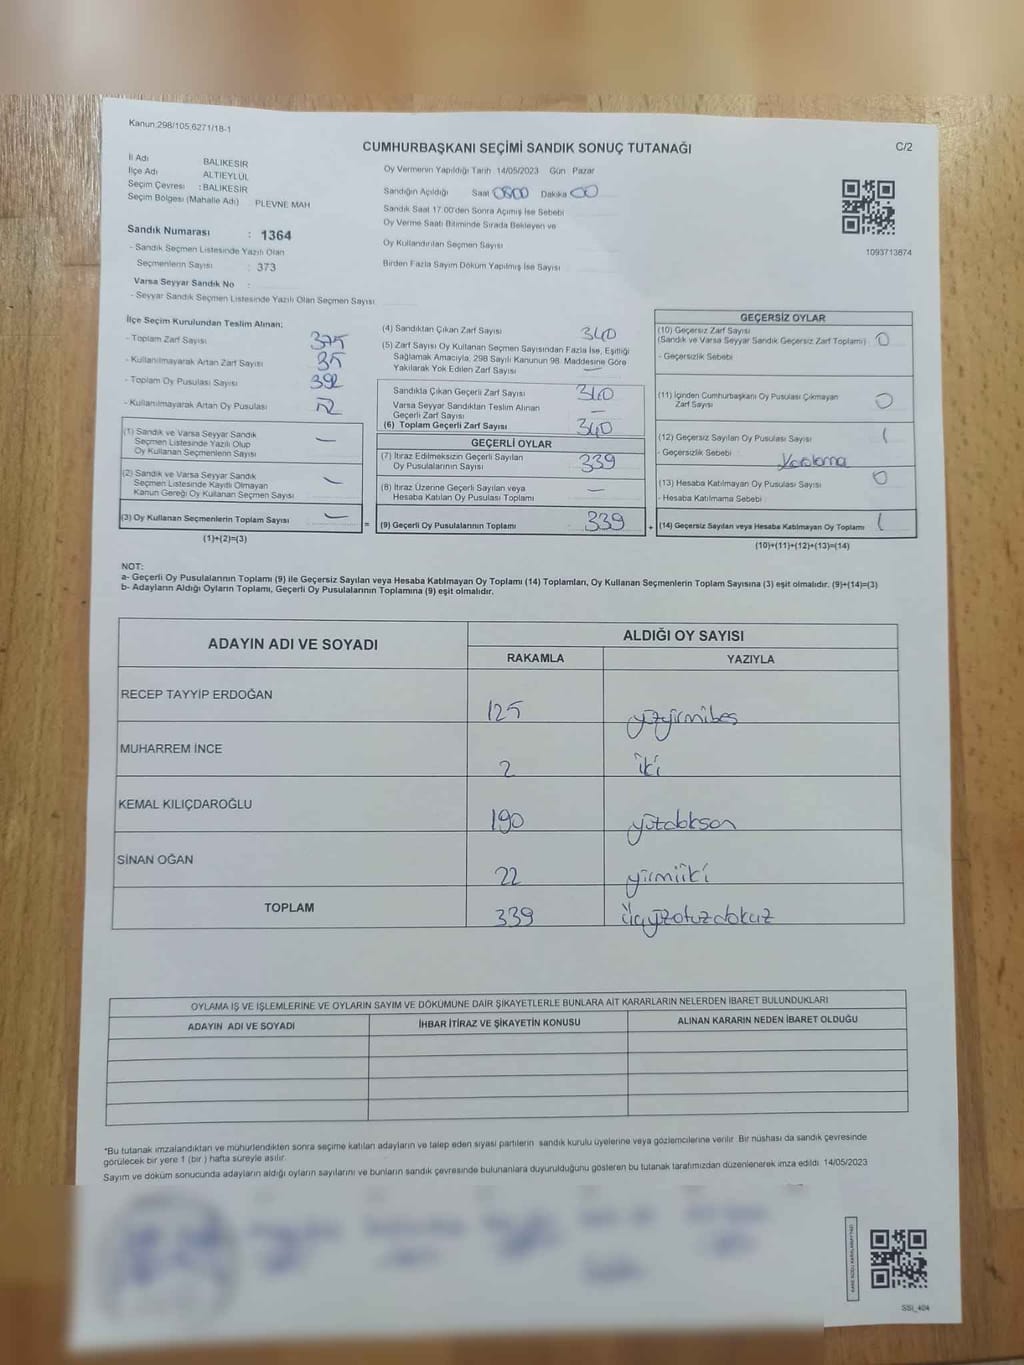 Kanun:298/105,6271/18-1
CUMHURBAŞKANI SEÇİMİ SANDIK SONUÇ TUTANAĞI
C/2
İl Adı BALIKESİR
İlçe Adı ALTIEYLÜL
Seçim Çevresi : BALIKESİR
Seçim Bölgesi (Mahalle Adı) PLEVNE MAH
Oy Vermenin Yapıldığı Tarih 14/05/2023 Gün Pazar
Sandığın Açıldığı Saat 0800 Dakika 00
Sandık Saat 17:00'den Sonra Açımış İse Sebebi
Oy Verme Saati Bitiminde Sırada Bekleyen ve
Oy Kullandırılan Seçmen Sayısı
Birden Fazla Sayım Döküm Yapılmış İse Sayısı
1093713674
Sandık Numarası : 1364
- Sandık Seçmen Listesinde Yazılı Olan
Seçmenlerin Sayısı : 373
Varsa Seyyar Sandık No :
- Seyyar Sandık Seçmen Listesinde Yazılı Olan Seçmen Sayısı
İlçe Seçim Kurulundan Teslim Alınan;
- Toplam Zarf Sayısı 375
- Kullanılmayarak Artan Zarf Sayısı 35
- Toplam Oy Pusulası Sayısı 392
- Kullanılmayarak Artan Oy Pusulası 52
(1) Sandık ve Varsa Seyyar Sandık
Seçmen Listesinde Yazılı Olup
Oy Kullanan Seçmenlerin Sayısı —
(2) Sandık ve Varsa Seyyar Sandık
Seçmen Listesinde Kayıtlı Olmayan
Kanun Gereği Oy Kullanan Seçmen Sayısı —
(3) Oy Kullanan Seçmenlerin Toplam Sayısı —
(1)+(2)=(3)
(4) Sandıktan Çıkan Zarf Sayısı 340
(5) Zarf Sayısı Oy Kullanan Seçmen Sayısından Fazla İse, Eşitliği
Sağlamak Amacıyla, 298 Sayılı Kanunun 98. Maddesine Göre
Yakılarak Yok Edilen Zarf Sayısı —
Sandıkta Çıkan Geçerli Zarf Sayısı 340
Varsa Seyyar Sandıktan Teslim Alınan
Geçerli Zarf Sayısı —
(6) Toplam Geçerli Zarf Sayısı 340
GEÇERLİ OYLAR
(7) İtiraz Edilmeksizin Geçerli Sayılan
Oy Pusulalarının Sayısı 339
(8) İtiraz Üzerine Geçerli Sayılan veya
Hesaba Katılan Oy Pusulası Toplamı —
= (9) Geçerli Oy Pusulalarının Toplamı 339
GEÇERSİZ OYLAR
(10) Geçersiz Zarf Sayısı
(Sandık ve Varsa Seyyar Sandık Geçersiz Zarf Toplamı) 0
- Geçersizlik Sebebi
(11) İçinden Cumhurbaşkanı Oy Pusulası Çıkmayan
Zarf Sayısı 0
(12) Geçersiz Sayılan Oy Pusulası Sayısı 1
- Geçersizlik Sebebi Karalama
(13) Hesaba Katılmayan Oy Pusulası Sayısı 0
- Hesaba Katılmama Sebebi
+ (14) Geçersiz Sayılan veya Hesaba Katılmayan Oy Toplamı 1
(10)+(11)+(12)+(13)=(14)
NOT:
a- Geçerli Oy Pusulalarının Toplamı (9) ile Geçersiz Sayılan veya Hesaba Katılmayan Oy Toplamı (14) Toplamları, Oy Kullanan Seçmenlerin Toplam Sayısına (3) eşit olmalıdır. (9)+(14)=(3)
b- Adayların Aldığı Oyların Toplamı, Geçerli Oy Pusulalarının Toplamına (9) eşit olmalıdır.
ADAYIN ADI VE SOYADI ALDIĞI OY SAYISI
RAKAMLA YAZIYLA
RECEP TAYYİP ERDOĞAN 125 yüzyirmibeş
MUHARREM İNCE 2 iki
KEMAL KILIÇDAROĞLU 190 yüzdoksan
SİNAN OĞAN 22 yirmiiki
TOPLAM 339 üçyüzotuzdokuz
OYLAMA İŞ VE İŞLEMLERİNE VE OYLARIN SAYIM VE DÖKÜMÜNE DAİR ŞİKAYETLERLE BUNLARA AİT KARARLARIN NELERDEN İBARET BULUNDUKLARI
ADAYIN ADI VE SOYADI İHBAR İTİRAZ VE ŞİKAYETİN KONUSU ALINAN KARARIN NEDEN İBARET OLDUĞU
*Bu tutanak imzalandıktan ve mühürlendikten sonra seçime katılan adayların ve talep eden siyasi partilerin sandık kurulu üyelerine veya gözlemcilerine verilir. Bir nüshası da sandık çevresinde
görülecek bir yere 1 (bir ) hafta süreyle asılır.
Sayım ve döküm sonucunda adayların aldığı oyların sayılarını ve bunların sandık çevresinde bulunanlara duyurulduğunu gösteren bu tutanak tarafımızdan düzenlenerek imza edildi. 14/05/2023
SSİ_404